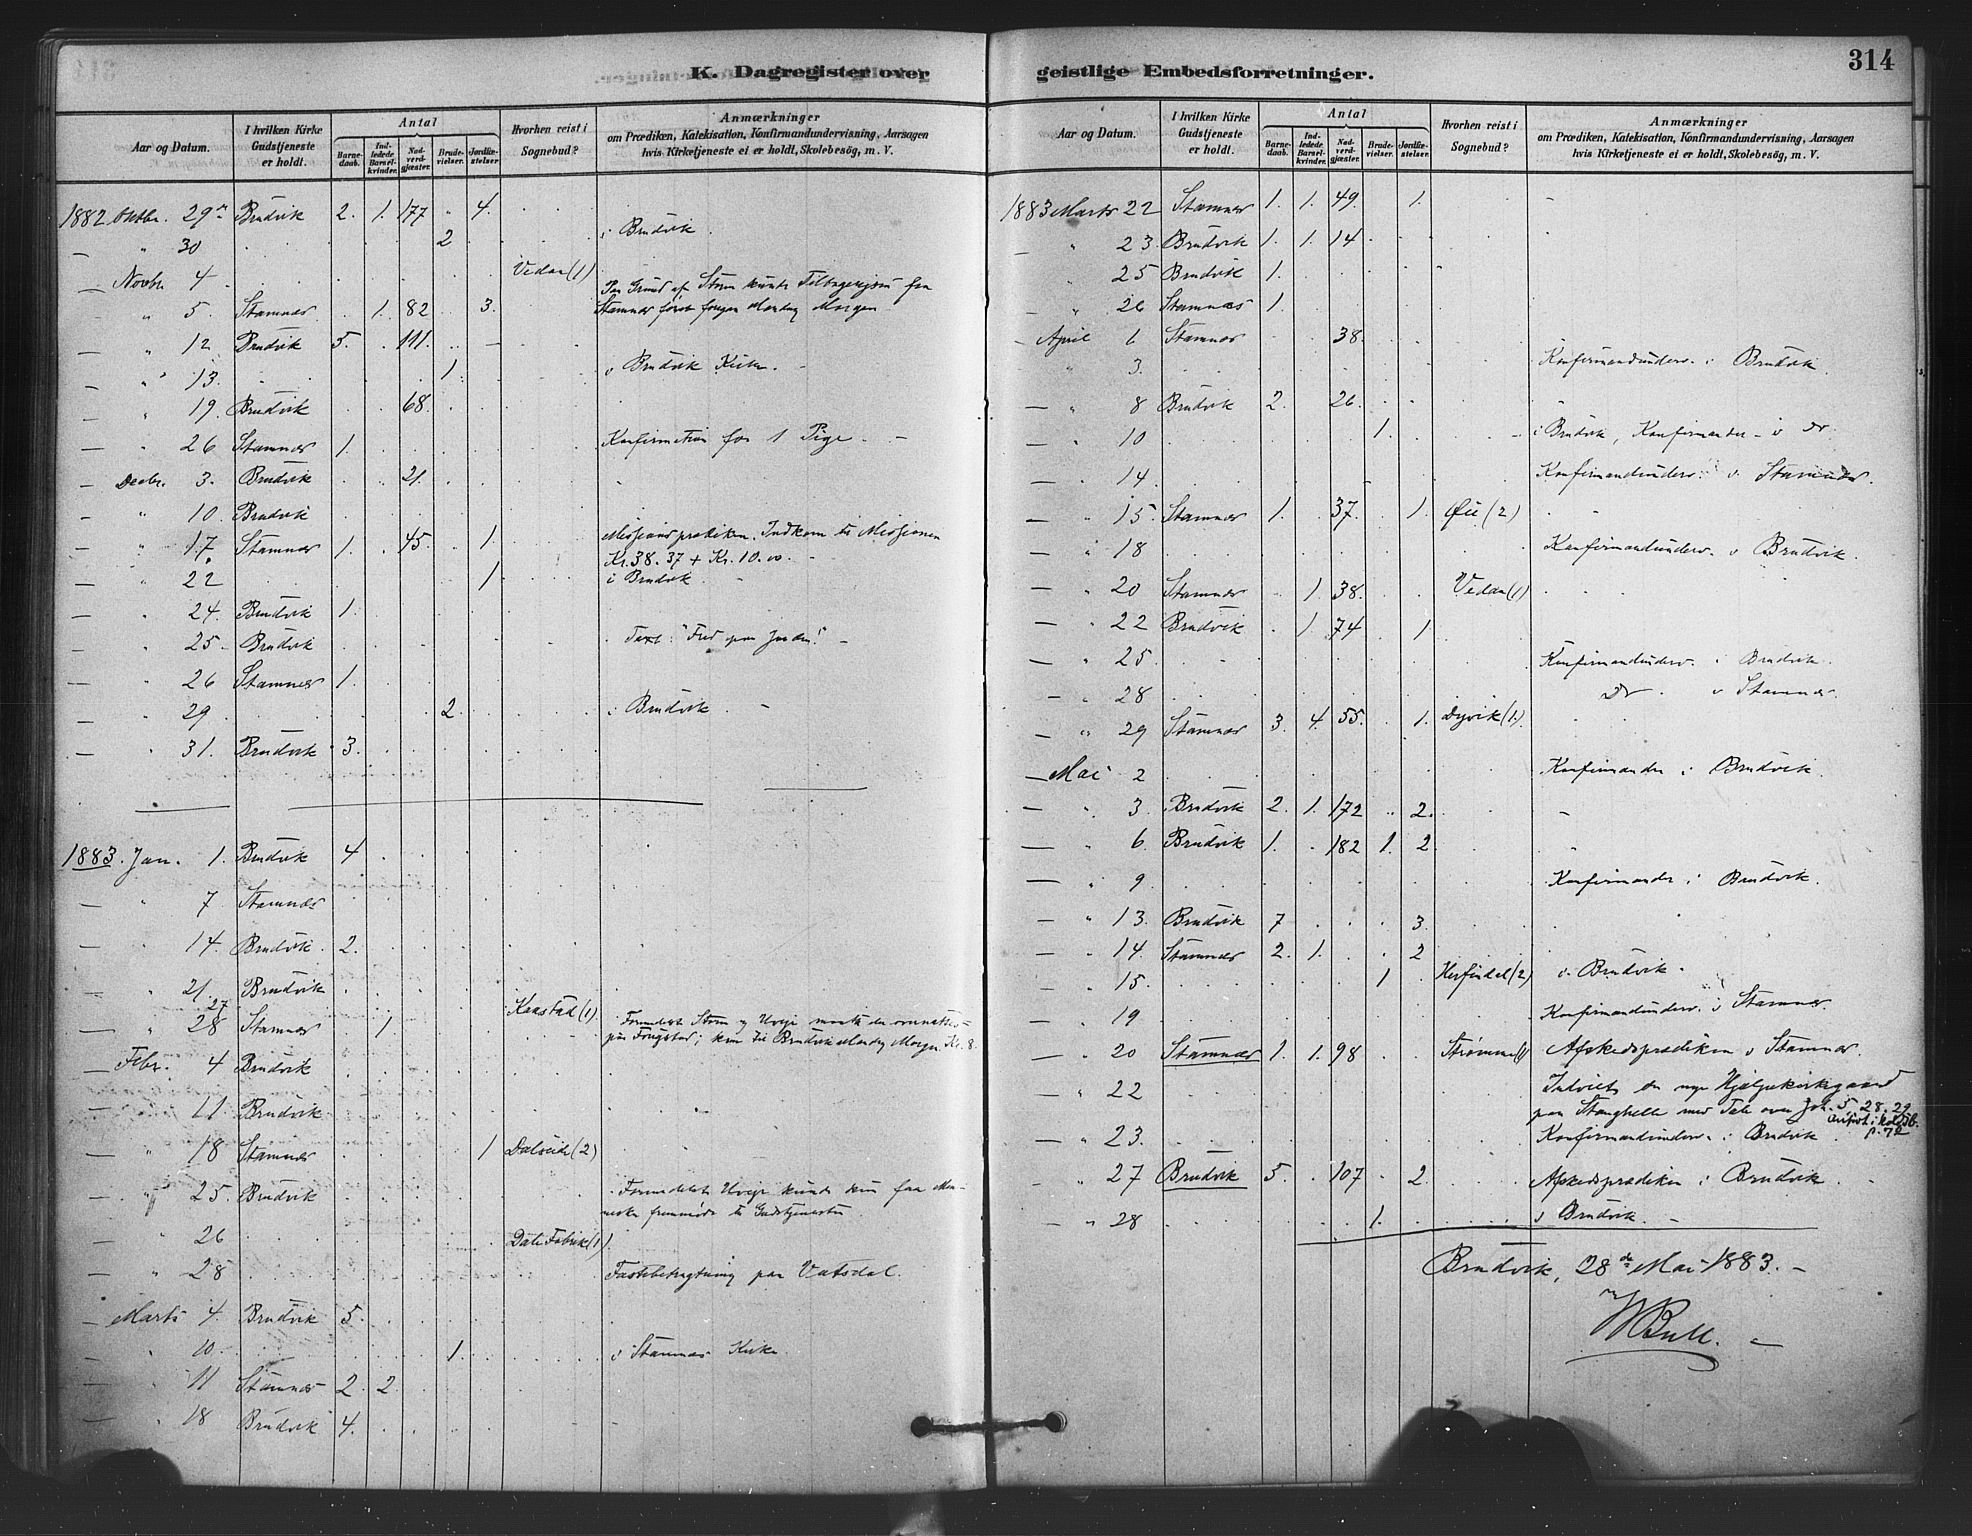 K. Dagregister over
Aar og Datum. I hvilken Kirke Gudstjeneste er holdt. Antal Barnedaab. Indledede Barselkvinder. Nadverdgjæster. Brudevielser. Jordfæstelser Hvorhen reist i Sognebud? Anmærkninger om Prædiken, Katekisation, Konfirmandundervisning, Aarsagen hvis Kirketjeneste ei er holdt, Skolebesög, m. V.
1882 Oktbr. 29 Brudvik 2. 1. 177 " 4.
— " 30 2 i Brudvik.
— Novbr. 4 Vedaa (1)
Paa Grund af Storm kunde fra
— " 5. Stamnæs 1. 82 3. Stamnæs først foregaa Mandag Morgen.
— " 12 Brudvik 5. 111.
— " 13. 1 i Brudvik Kirke.
" 19. Brudvik 68.
— " 26 Stamnæs 1. Konfirmation for 1 Pige.
— Decbr. 3. Brudvik 21.
— " 10. Brudvik
— " 17. Stamnæs 1. 45. 1 Missionsprædiken. Indkom til Missionen
Kr. 38.37 + Kr. 10.00
— " 22 1 i Brudvik
— " 24. Brudvik 1.
— " 25. Brudvik Text: "Fred paa Jorden!"
— " 26 Stamnæs 1.
— " 29 2. i Brudvik
— " 31. Brudvik 3.
1883. Jan. 1. Brudvik 4
— " 7 Stamnæs
— " 14. Brudvik 2.
— " 21. Brudvik
27 Kaastad (1)
— " 28 Stamnæs 1. Formedelst Storm og Uveir maatte der overnattes
paa Fougstad; kom til Brudvik Mandag Morgen Kl. 8.
— Febr. 4 Brudvik
— " 11 Brudvik
— " 18 Stamnæs 1 Dalseide (2)
— " 25. Brudvik Formedelst Uveir kunde kun faa Men-
nesker fremmøde til Gudstjenesten
— " 26 Dale Fabrik (1)
— " 28 Fastebetragtning paa Vatsdal.
— Marts 4. Brudvik 5.
" 10 1. i Stamnæs Kirke
" 11 Stamnæs 2 2.
" 18 Brudvik 4.
geistlige Embedsforretninger.
314
Aar og Datum. I hvilken Kirke Gudstjeneste er holdt. Antal Barnedaab. Indledede Barselkvinder. Nadverdgjæster. Brudevielser. Jordfæstelser. Hvorhen reist i Sognebud? Anmærkninger om Prædiken, Katekisation, Konfirmandundervisning, Aarsagen hvis Kirketjeneste ei er holdt, Skolebesög, m. V.
1883 Marts 22 Stamnæs 1. 1. 49. 1.
— " 23. Brudvik 1. 1. 14
— " 25 Brudvik 1.
— " 26 Stamnæs 1.
— April 1 Stamnæs 38.
" 3. Konfirmandunderv. i Brudvik.
— " 8 Brudvik 2. 26.
— " 10 1. i Brudvik, Konfirmander i do
— " 14. Konfirmandunderv. i Stamnæs.
— " 15. Stamnæs 1. 37. 1. Øie (2)
— " 18 Konfirmandunderv. i Brudvik.
— " 20 Stamnæs 1. 38. Vedaa (1)
— " 22 Brudvik 1. 74 1
— " 25. Konfirmandunderv. i Brudvik.
— " 28 do i Stamnæs.
— " 29 Stamnæs 3. 4. 55. 1. Dyvik (1.)
— Mai 2 Konfirmander i Brudvik.
— " 3. Brudvik 2. 1. 172 2.
— " 6. Brudvik 1. 182 1. 2.
— " 9. Konfirmander i Brudvik.
— " 13. Brudvik 7 3.
— " 14. Stamnæs 2. 1. 2
— " 15. 1 Herfindal (2) i Brudvik.
— " 19 Konfirmandunderv. i Stamnæs.
— " 20 Stamnæs 1. 1. 98 Strømme (1) Afskedsprædiken i Stamnæs.
— " 22 Indviet den nye Hjælpekirkegaard
paa Stanghelle med Tale over Joh. 5, 28. 29
anført i kaldsb. p. 72
— " 23. Konfirmandunderv. i Brudvik
— " 27 Brudvik 5. 107 2. Afskedsprædiken i Brudvik.
— " 28 1. i Brudvik.
Brudvik, 28de Mai 1883.
Bull.